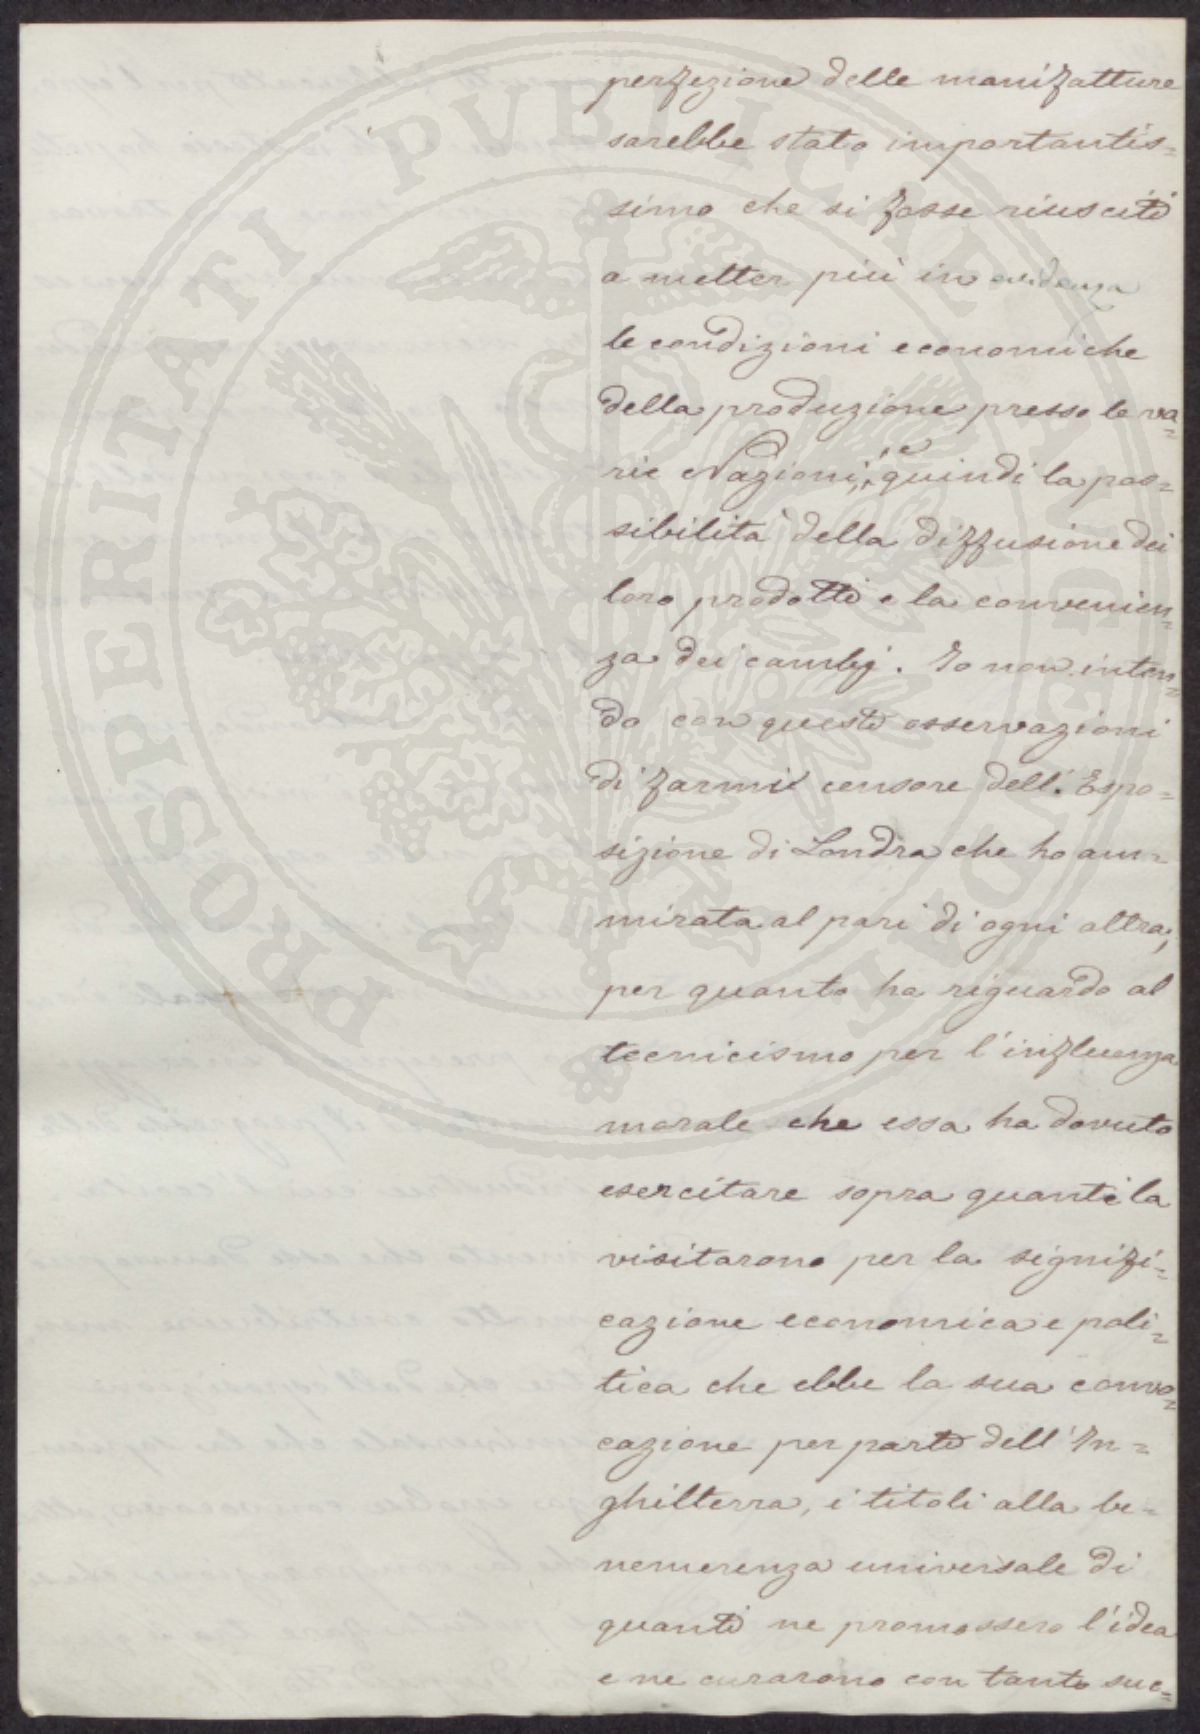 perfezione delle manifatture
sarebbe stato importantis=
simo che si fosse riusciti
a metter più in evidenza
le condizioni economiche
della produzione presso le va=
rie Nazioni, e quindi la pos=
sibilità della diffusione dei
loro prodotti e la convenien=
za dei cambj. Io non inten=
do con queste osservazioni
di farmi censore dell'Espo=
sizione di Londra che ho am=
mirata al pari di ogni altra,
per quanto ha riguardo al
tecnicismo per l'influenza
morale che essa ha dovuto
esercitare sopra quanti la
visitarono per la signifi=
cazione economica e poli=
tica che ebbe la sua convo=
cazione per parte dell'In=
ghilterra, i titoli alla be=
nemerenza universale di
quanti ne promossero l'idea
e ne curarono con tanto suc=
PROSPERITATI PVBLICAE AVGENDAE